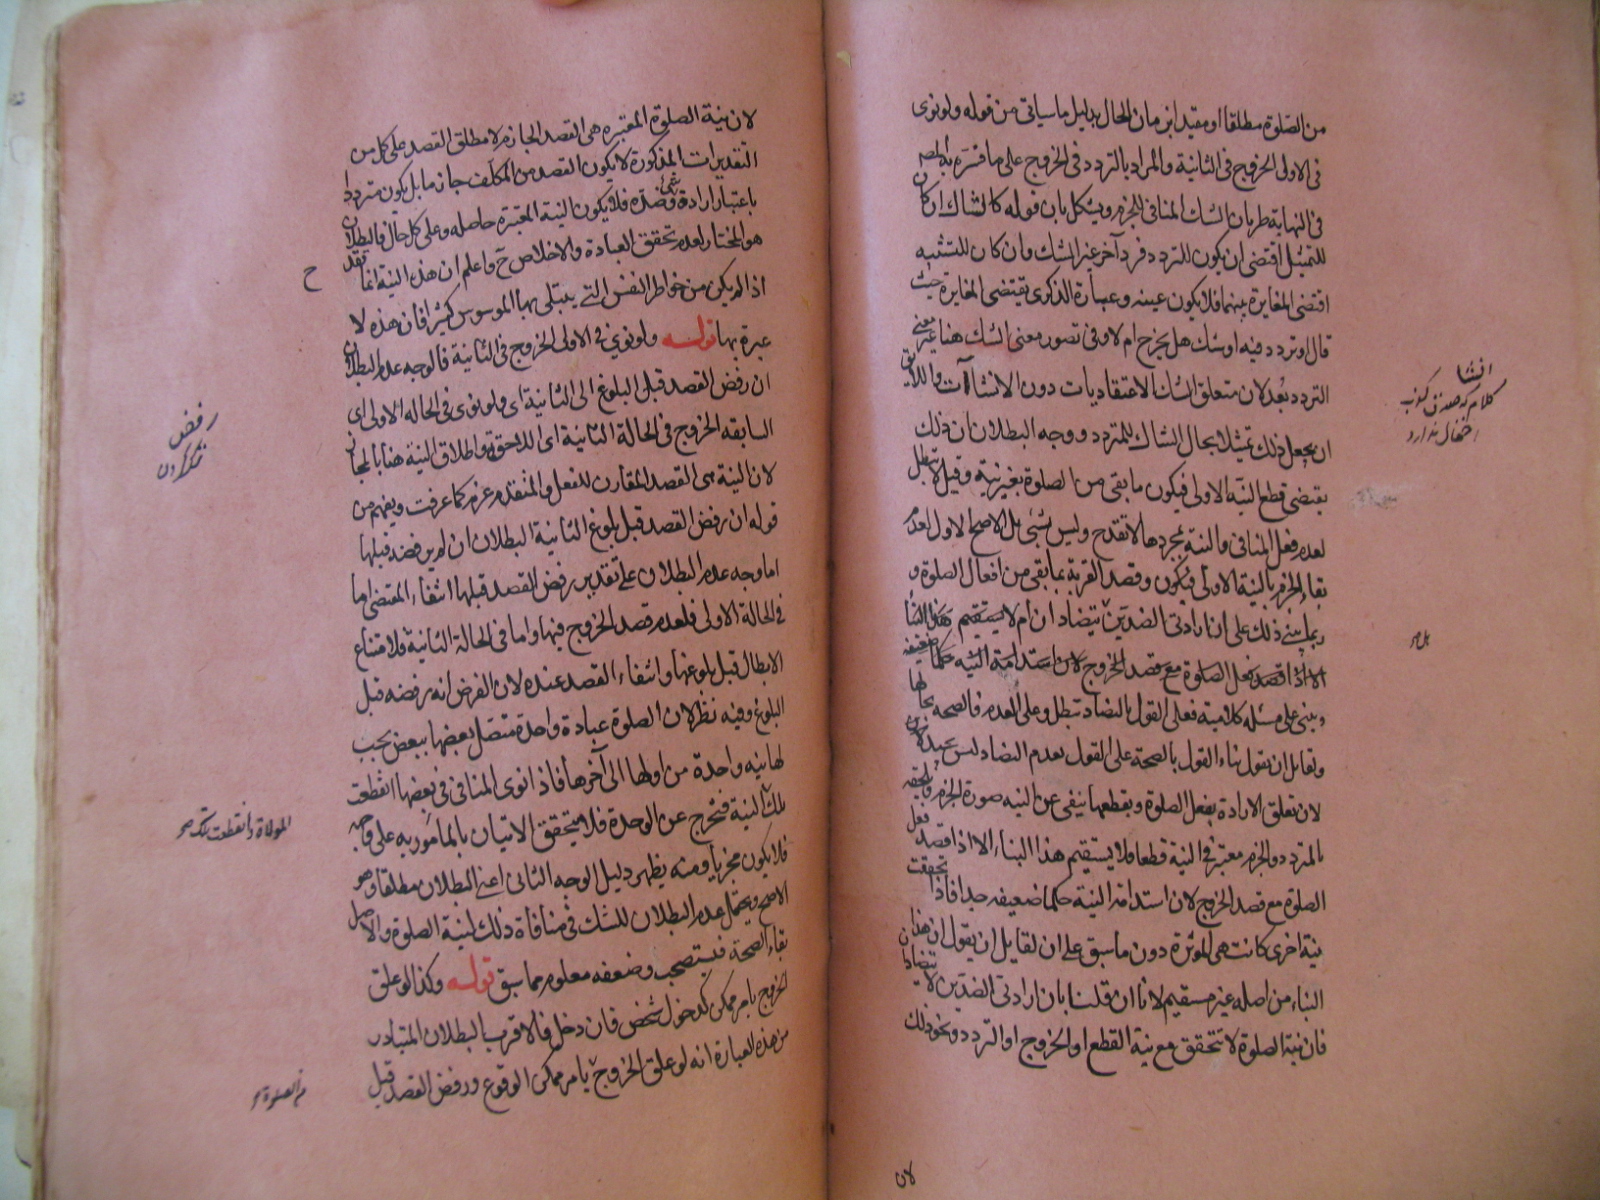 من الصلوة مطلقا او مقيد ابزمان الحال بدليل ما سياتى من قوله ولو نوى
فى الاولى الخروج فى الثانية والمراد بالتردد فى الخروج على ما فسره به المصـ
فى النهاية طريان الشك المنافى للجزم ويشكل بان قوله كالشاك ان كان
للتمثيل اقتضى ان يكون للتردد فرد آخر غير الشك وان كان للتشبيه
اقتضى المغايرة بينهما فلا يكون عينه وعبارة الذكرى يقتضى المغايرة حيث
قال او تردد فيه او شك هل يخرج ام لا وفى تصور معنى الشك هنا غير معنى
التردد بعد لان متعلق الشك الاعتقاديات دون الانشاآت واللايق
ان يجعل ذلك تمثيلا بحال الشاك للمتردد ووجه البطلان ان ذلك
يقتضى قطع النية الاولى فيكون ما بقى من الصلوة بغير نية وقيل لا تبطل
لعدم فعل المنافى والنية بمجردها لا تقدح وليس بشئ بل الاصح الاول لعدم
بقاء الجزم بالنية الاولى فيكون وقصد القربة بما بقى من افعال الصلوة و
ربما بنى ذلك على ان ارادتى الضدين يتضاد ان ام لا يستقيم هذا البناء
الا اذا قصد بفعل الصلوة مع قصد الخروج لان استدامة النية حكما ضعيفه
وبنى على مسئله كلامية فعلى القول بالتضاد تبطل وعلى العدم فالصحه بحالها
ولقايل ان يقول بناء القول بالصحة على القول بعدم التضاد ليس بجيد لان
لان تعلق الارادة بفعل الصلوة وبقطعها ينفى عن النيه صورة الجزم ويلحقه
بالمتردد والجزم معتبر فى النية قطعا ولا يستقيم هذا البناء الا اذا قصد فعل
الصلوة مع قصد الخروج لان استدامة النية حكما ضعيفه جدا فاذا تحققت
نية اخرى كانت هى المؤثرة دون ما سبق على ان لقايل ان يقول ان هذا
البناء من اصله غير مستقيم لانا ان قلنا بان ارادتى الضدين لا يتضادان
فان نية الصلوة لا تتحقق مع نية القطع او الخروج او التردد ونحو ذلك
لان
انشا
كلام كه صدق كذب
احتمال ندارد
لان نية الصلوة المعتبره هى القصد الجازم لا مطلق القصد على كل من
التقديرات المذكورة لا يكون القصد من المكلف جازما بل يكون مترددا
باعتبار ارادة شئ وضده فلا يكون النية المعتبرة حاصله وعلى كل حال فالبطلان
هو المختار لعدم تحقق العبادة والاخلاص ح واعلم ان هذه النية انما تقدح
اذا لم يكن من خواطر النفس التى يبتلى بها الموسوس كثيرا فان هذه لا
عبرة بها قوله ولو نوى فى الاولى الخروج فى الثانية فالوجه عدم البطلان
ان رفض القصد قبل البلوغ الى الثانية اى ولو نوى فى الحاله الاولى اى
السابقه الخروج فى الحالة الثانية اى اللاحقة واطلاق النية هنا بالمجاز
لان النية هى القصد المقارن للفعل والمتقدم عزم كما عرفت ويفهم من
قوله ان رفض القصد قبل بلوغ الثانية البطلان ان لم يرفضه قبلها
اما وجه عدم البطلان على تقدير رفض القصد قبلها انتفاء المقتضى اما
فى الحالة الاولى فلعدم قصد الخروج فيها واما فى الحالة الثانية فلامتناع
الابطال قبل بلوغها وانتفاء القصد عنده لان الفرض انه رفضه قبل
البلوغ وفيه نظر لان الصلوة عبادة واحدة متصل بعضها ببعض يجب
لها نيه واحدة من اولها الى آخرها فاذا نوى المنافى فى بعضها انقطعت
تلك النية فتخرج عن الوحدة فلا يتحقق الاتيان بالمأمور به على وجهه
فلا يكون مجزيا ومنه يظهر دليل الوجه الثانى اعنى البطلان مطلقا وهو
الاصح ويحتمل عدم البطلان للشك فى منافاة ذلك لنية الصلوة والاصل
بقاء الصحة فيستصحب وضعفه معلوم مما سبق قوله وكذا لو علق
الخروج بامر ممكن كدخول شخص فان دخل فالاقرب البطلان المتبادر
من هذه العبارة انه لو علق الخروج بامر ممكن الوقوع ورفض القصد قبل
ح
رفض
ترك كردن
الموالاة وانقطعت تلك صح